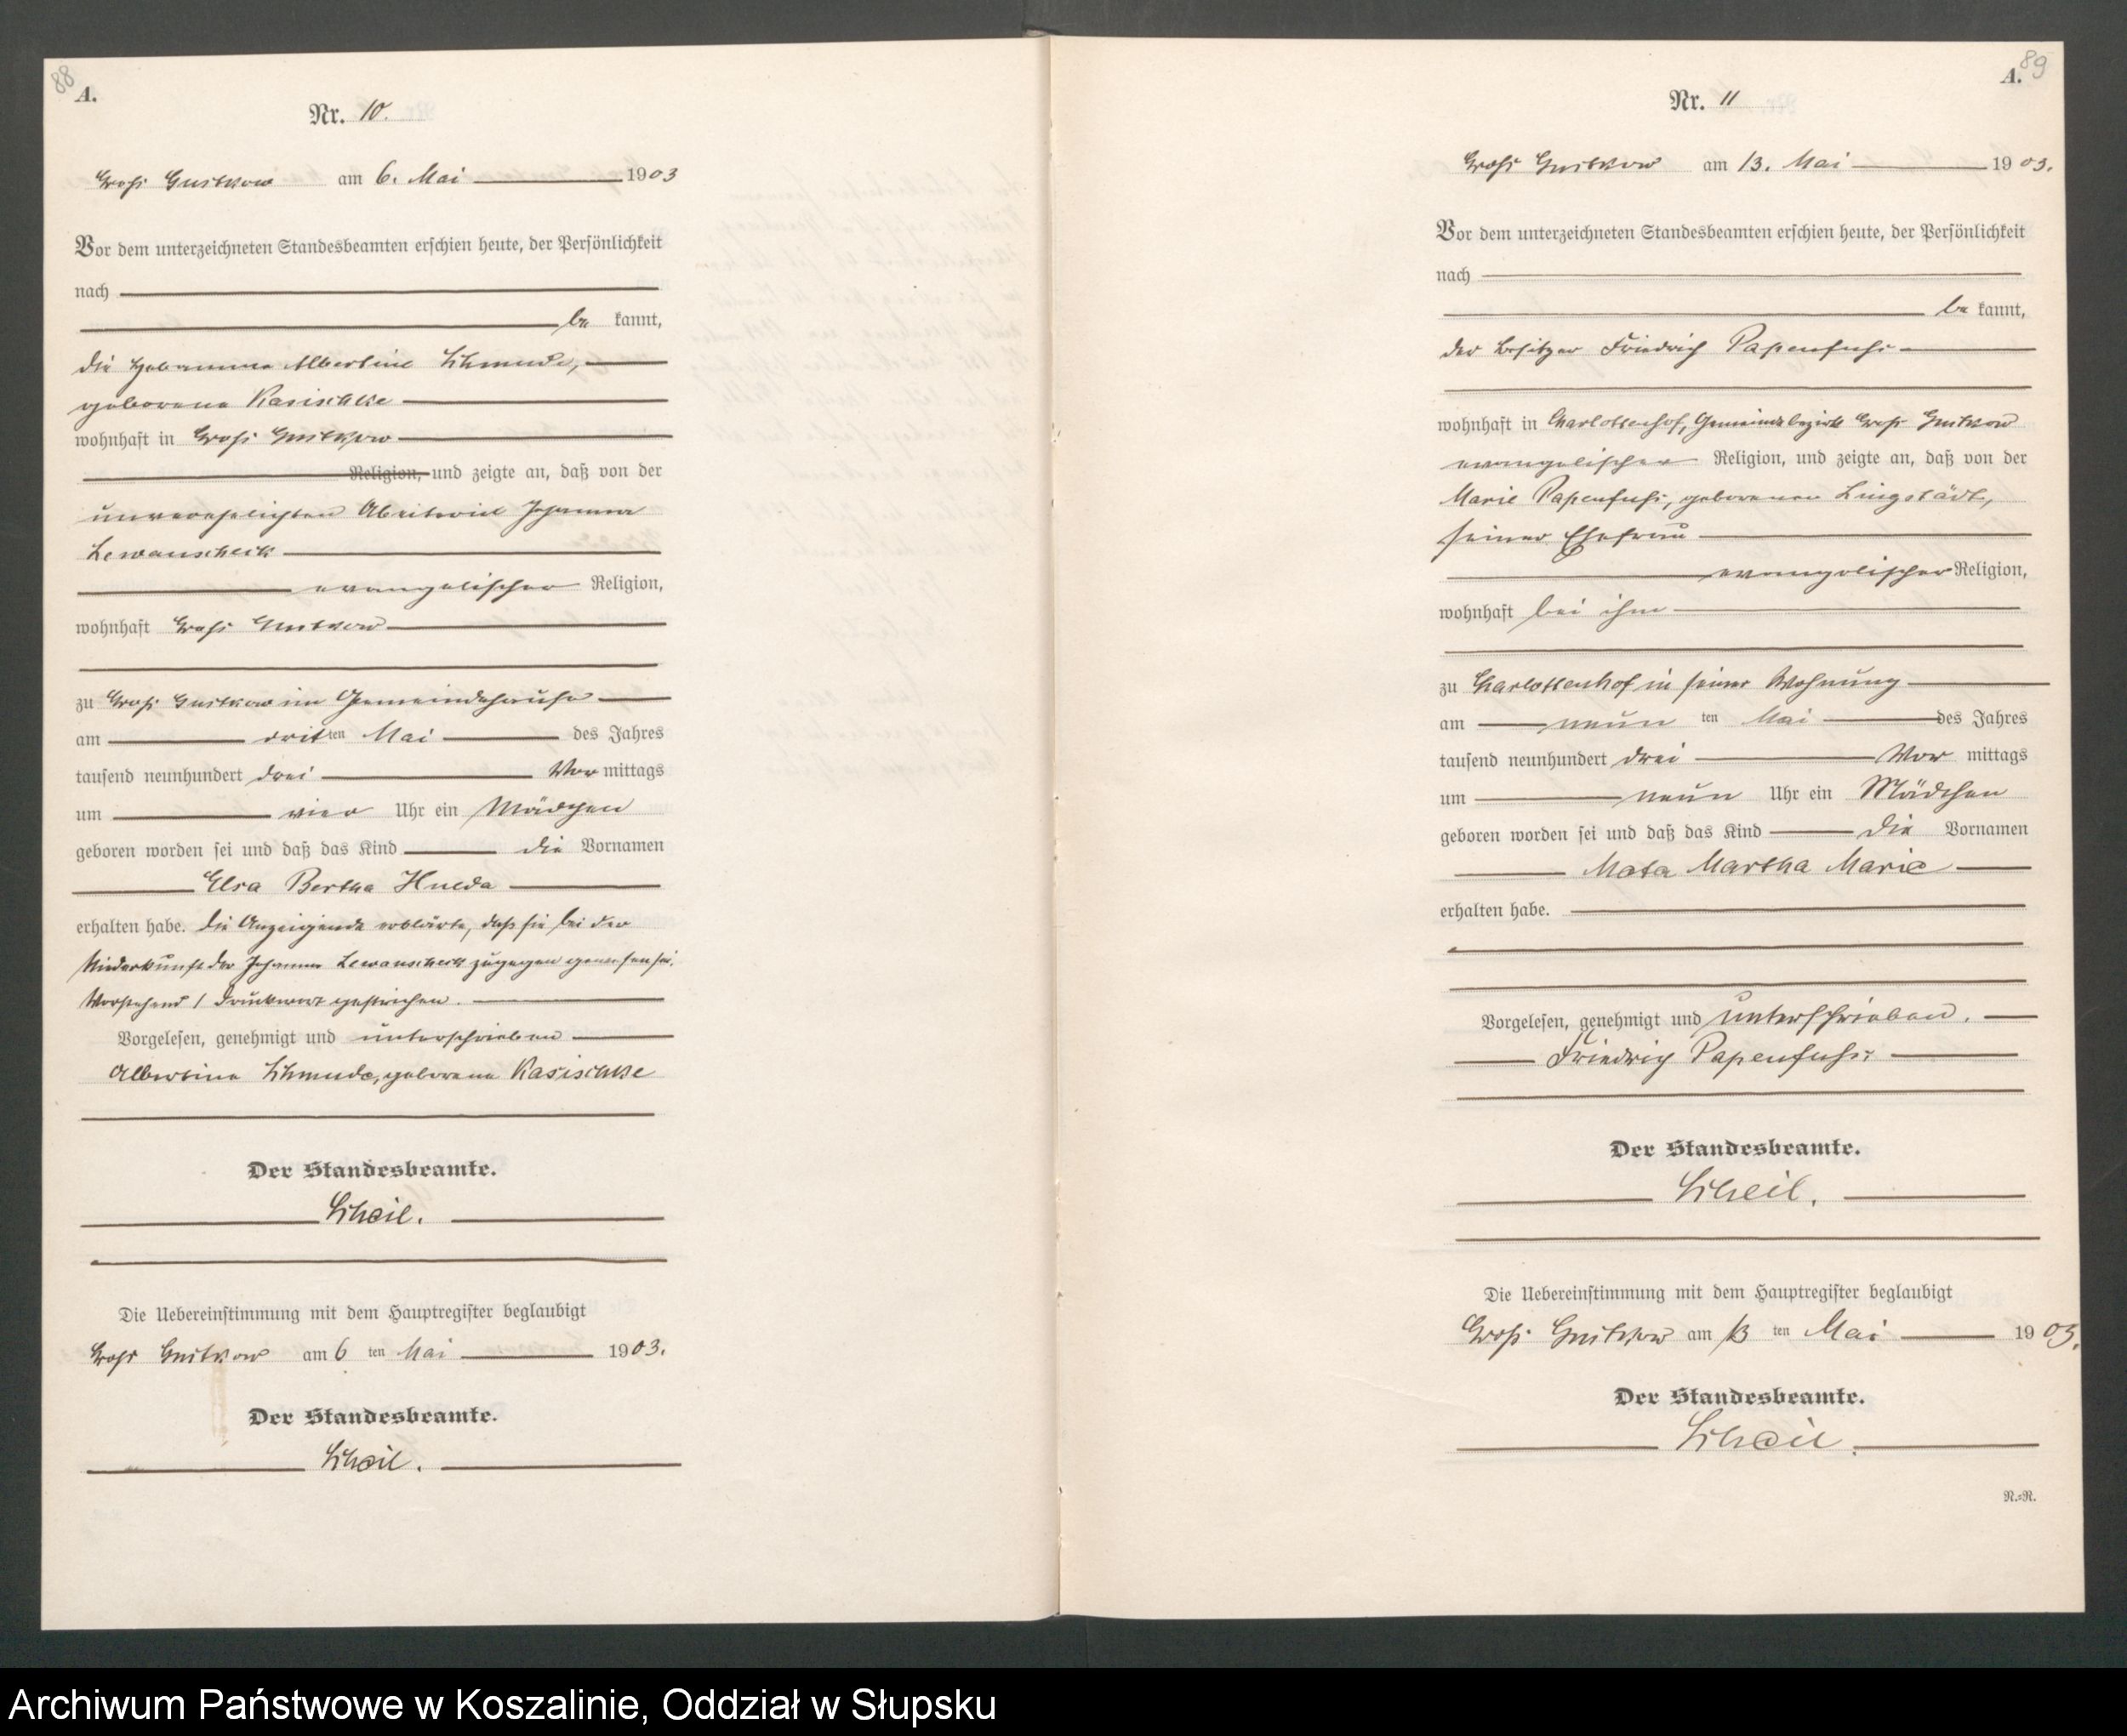 88
A.
Nr. 10.
Groß Gustkow am 6. Mai 1903
Vor dem unterzeichneten Standesbeamten erschien heute, der Persönlichkeit
nach
be kannt,
die Hebamme Albertine Schmude,
geborene Kasischke
wohnhaft in Groß Gustkow
Religion, und zeigte an, daß von der
unverehelichten Arbeiterin Johanna
Lewanscheck
evangelischer Religion,
wohnhaft Groß Gustkow
zu Groß Gustkow im Gemeindehause
am dritten Mai des Jahres
tausend neunhundert drei Vor mittags
um vier Uhr ein Mädchen
geboren worden sei und daß das Kind die Vornamen
Elsa Bertha Hulda
erhalten habe. Die Anzeigende erklärte, daß sie bei der
Niederkunft der Johanna Lewanscheck zugegen gewesen sei.
Vorstehend 1 Druckwort gestrichen.
Vorgelesen, genehmigt und unterschrieben
Albertine Schmude, geborene Kasischke
Der Standesbeamte.
Scheil.
Die Uebereinstimmung mit dem Hauptregister beglaubigt
Groß Gustkow am 6 ten Mai 1903.
Der Standesbeamte.
Scheil.
89
A.
Nr. 11
Groß Gustkow am 13. Mai 1903.
Vor dem unterzeichneten Standesbeamten erschien heute, der Persönlichkeit
nach
be kannt,
der Besitzer Friedrich Papenfuhs
wohnhaft in Charlottenhof, Gemeindebezirk Groß Gustkow
evangelischer Religion, und zeigte an, daß von der
Marie Papenfuhs, geborenen Lingstädt,
seiner Ehefrau
evangelischer Religion,
wohnhaft bei ihm
zu Charlottenhof in seiner Wohnung
am neun ten Mai des Jahres
tausend neunhundert drei Vor mittags
um neun Uhr ein Mädchen
geboren worden sei und daß das Kind die Vornamen
Meta Martha Marie
erhalten habe.
Vorgelesen, genehmigt und unterschrieben.
Friedrich Papenfuhs
Der Standesbeamte.
Scheil.
Die Uebereinstimmung mit dem Hauptregister beglaubigt
Groß Gustkow am 13 ten Mai 1903.
Der Standesbeamte.
Scheil.
N.=R.
Archiwum Państwowe w Koszalinie, Oddział w Słupsku